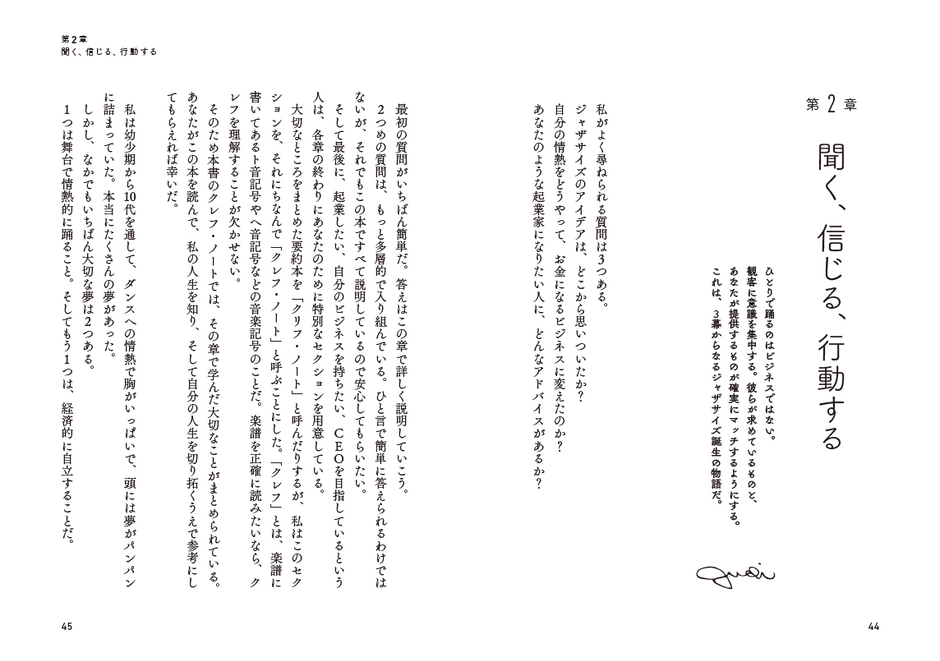 第2章
聞く、信じる、行動する
ひとりで踊るのはビジネスではない。
観客に意識を集中する。彼らが求めているものと、
あなたが提供するものが確実にマッチするようにする。
これは、3幕からなるジャザサイズ誕生の物語だ。
Judi
私がよく尋ねられる質問は3つある。
ジャザサイズのアイデアは、どこから思いついたか？
自分の情熱をどうやって、お金になるビジネスに変えたのか？
あなたのような起業家になりたい人に、どんなアドバイスがあるか？
44
第2章
聞く、信じる、行動する
最初の質問がいちばん簡単だ。答えはこの章で詳しく説明していこう。
2つめの質問は、もっと多層的で入り組んでいる。ひと言で簡単に答えられるわけでは
ないが、それでもこの本ですべて説明しているので安心してもらいたい。
そして最後に、起業したい、自分のビジネスを持ちたい、CEOを目指しているという
人は、各章の終わりにあなたのために特別なセクションを用意している。
大切なところをまとめた要約本を「クリフ・ノート」と呼んだりするが、私はこのセク
ションを、それにちなんで「クレフ・ノート」と呼ぶことにした。「クレフ」とは、楽譜に
書いてあるト音記号やヘ音記号などの音楽記号のことだ。楽譜を正確に読みたいなら、ク
レフを理解することが欠かせない。
そのため本書のクレフ・ノートでは、その章で学んだ大切なことがまとめられている。
あなたがこの本を読んで、私の人生を知り、そして自分の人生を切り拓くうえで参考にし
てもらえれば幸いだ。
私は幼少期から10代を通して、ダンスへの情熱で胸がいっぱいで、頭には夢がパンパン
に詰まっていた。本当にたくさんの夢があった。
しかし、なかでもいちばん大切な夢は2つある。
1つは舞台で情熱的に踊ること。そしてもう1つは、経済的に自立することだ。
45